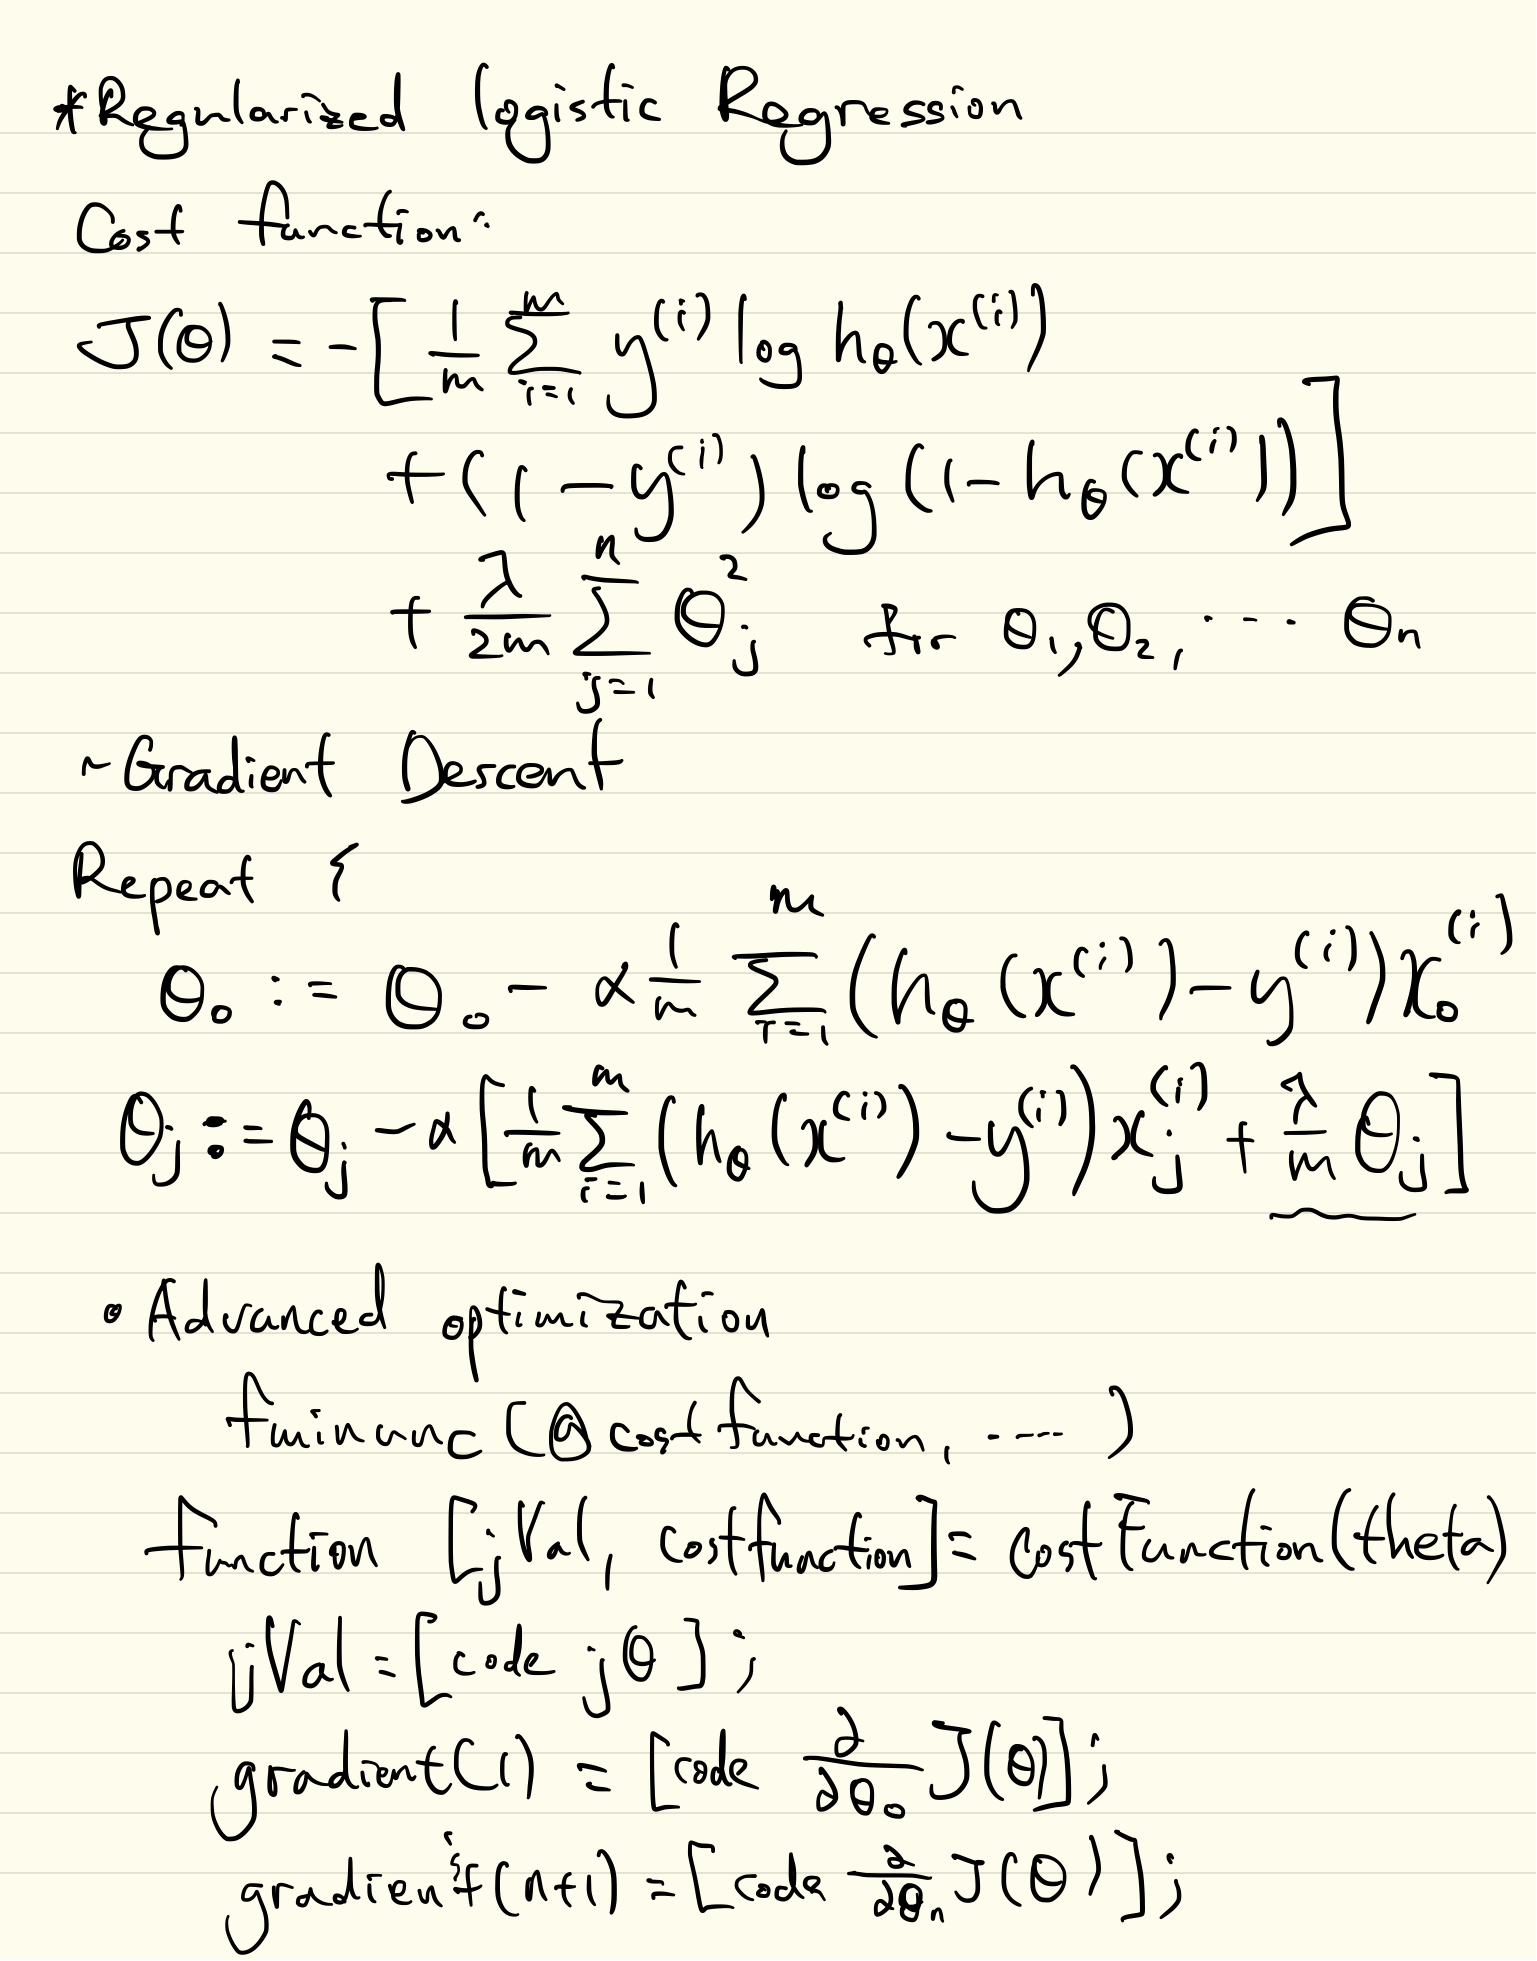 *Regularized logistic Regression
Cost function:
J(θ) = -[ 1/m Σ_{i=1}^{m} y^{(i)} log h_θ(x^{(i)})
+ (1 - y^{(i)}) log (1 - h_θ(x^{(i)})) ]
+ λ/2m Σ_{j=1}^{n} θ_j^2 for θ_1, θ_2, ... θ_n
~Gradient Descent
Repeat {
θ_0 := θ_0 - α 1/m Σ_{i=1}^{m} (h_θ(x^{(i)}) - y^{(i)}) x_0^{(i)}
θ_j := θ_j - α [ 1/m Σ_{i=1}^{m} (h_θ(x^{(i)}) - y^{(i)}) x_j^{(i)} + λ/m θ_j ]
• Advanced optimization
fminunc (@ cost function, ....)
function [jVal, costfunction] = costFunction(theta)
jVal = [code jθ];
gradient(1) = [code ∂/∂θ_0 J(θ)];
gradient(n+1) = [code ∂/∂θ_n J(θ)];